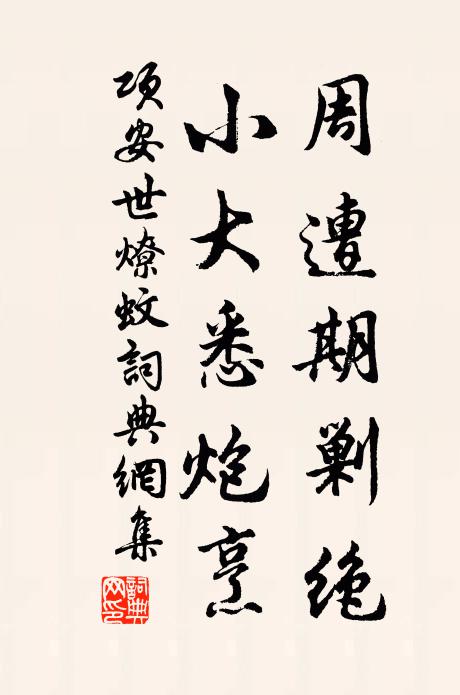 周遭期剿绝
小大悉炮烹
项安世燎蚊詞典網集
詞典網印